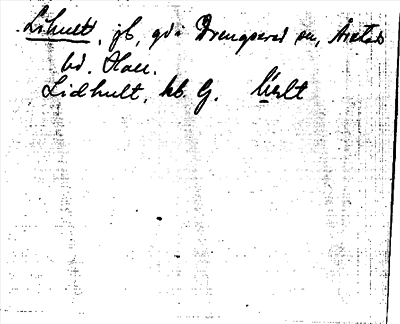 Lihult, jb, gd i Drengsered sn, Årstad
hd. Hall.
Lidhult, kb. G.